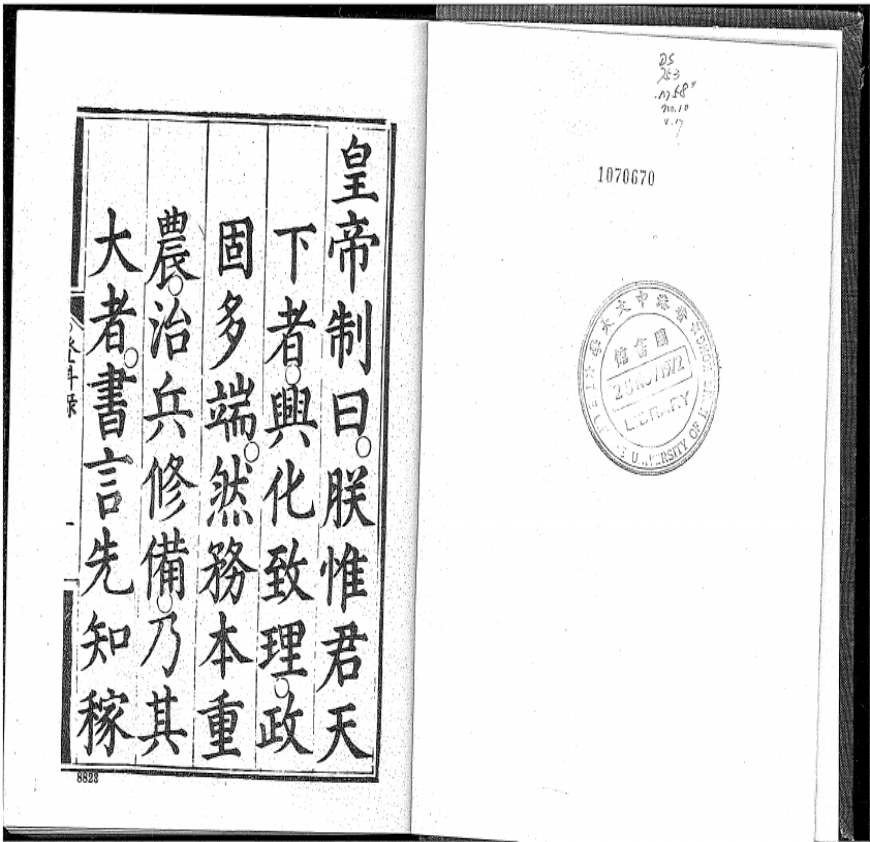 DS
753
no.10
1070670
香港中文大學
圖書館
LIBRARY
UNIVERSITY OF HONG KONG
皇帝制曰。朕惟君天
下者。興化致理。政
固多端。然務本重
農。治兵修備。乃其
大者。書言先知稼
登科錄
一
8823